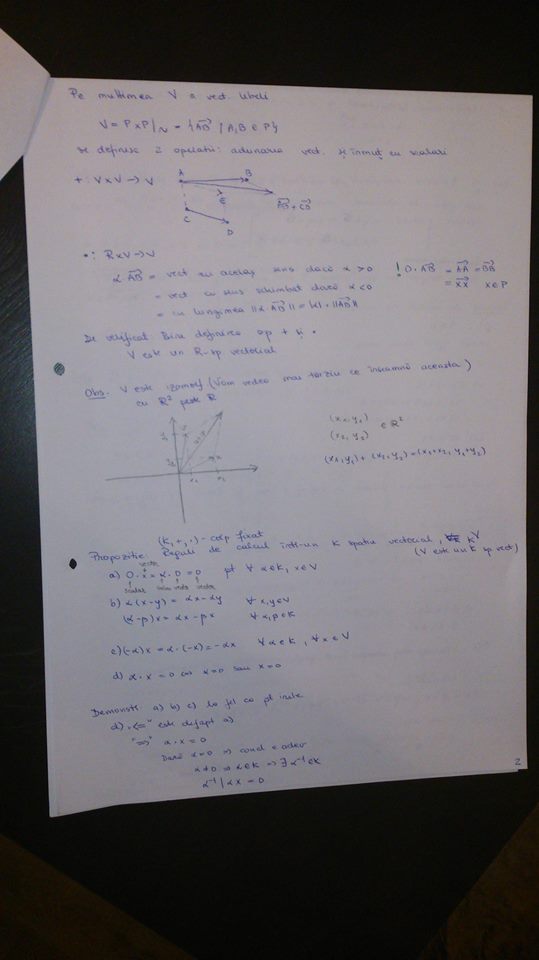 Pe mulțimea V = vect. liberi
V = P×P/~ = {AB / A,B ∈ P}
se definesc 2 operații: adunarea vect. și înmulț cu scalari
+: V×V → V
A B
E
AB + CD
C
D
•: R×V → V
α·AB = vect cu același sens dacă α > 0
! 0·AB = AA = BB
= vect cu sens schimbat dacă α < 0
= XX X ∈ P
= cu lungimea ||α·AB|| = |α|·||AB||
De verificat Bine definirea op + și •
V este un R-sp vectorial
Obs. V este izomorf (Vom vedea mai târziu ce înseamnă aceasta)
cu R² peste R
(x₁,y₁)
(x₂,y₂) ∈ R²
(x₁,y₁) + (x₂,y₂) = (x₁+x₂, y₁+y₂)
x₁ x₂
(K,+,·) - corp fixat
Propoziție: Reguli de calcul într-un K spațiu vectorial, KV
(V este un K sp vect)
vector
a) 0·x = α·0 = 0 pt ∀ α∈K, x∈V
scalar scalar vector vector
b) α(x-y) = αx - αy ∀ x,y∈V
(α-β)x = αx - βx ∀ α,β∈K
c) (-α)x = α·(-x) = -αx ∀ α∈K, ∀ x∈V
d) α·x = 0 ⟺ α=0 sau x=0
Demonstr a) b) c) la fel ca pt inele
d) „⇐" este defapt a)
"⇒" α·x = 0
Dacă α=0 ⇒ cond e adev
α≠0 ⇒ α∈K ⇒ ∃ α⁻¹∈K
α⁻¹ | αx = 0
2